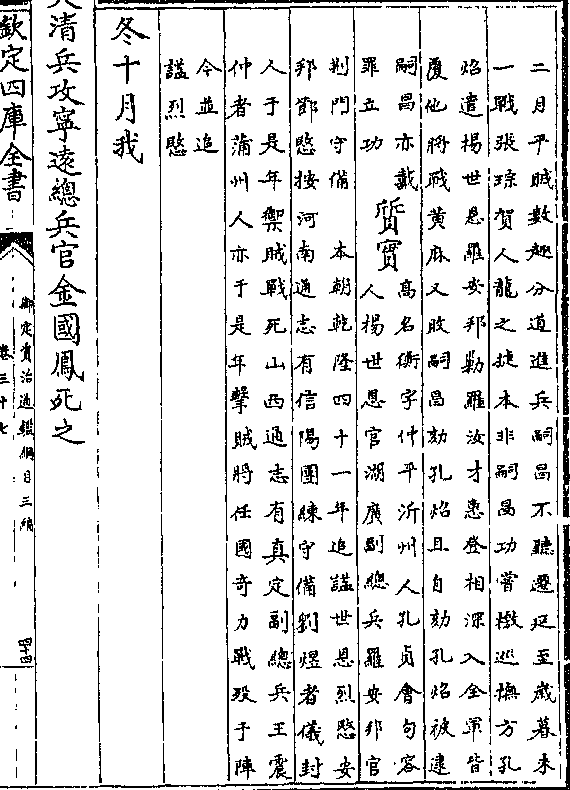 二月平賊數趣分道進兵嗣昌不聽遷延至歲暮未
一戰張琮賀人龍之捷本非嗣昌功嘗檄巡撫方孔
炤遣楊世恩羅安邦勦羅汝才惠登相深入全軍皆
覆他將戚黃麻又敗嗣昌劾孔炤且自劾孔炤被逮
嗣昌亦戴
罪立功
質實
高名衡字仲平沂州人孔貞會句容
人楊世恩官湖廣副總兵羅安邦官
荆門守備 本朝乾隆四十一年追諡世恩烈愍安
邦節愍按河南通志有信陽團練守備劉煜者儀封
人于是年禦賊戰死山西通志有真定副總兵王震
仲者蒲州人亦于是年擊賊將任國奇力戰歿于陣
今並追
諡烈愍
冬十月我
大清兵攻寧遠總兵官金國鳳死之
欽定四庫全書
御定資治通鑑綱目三編
卷三十七